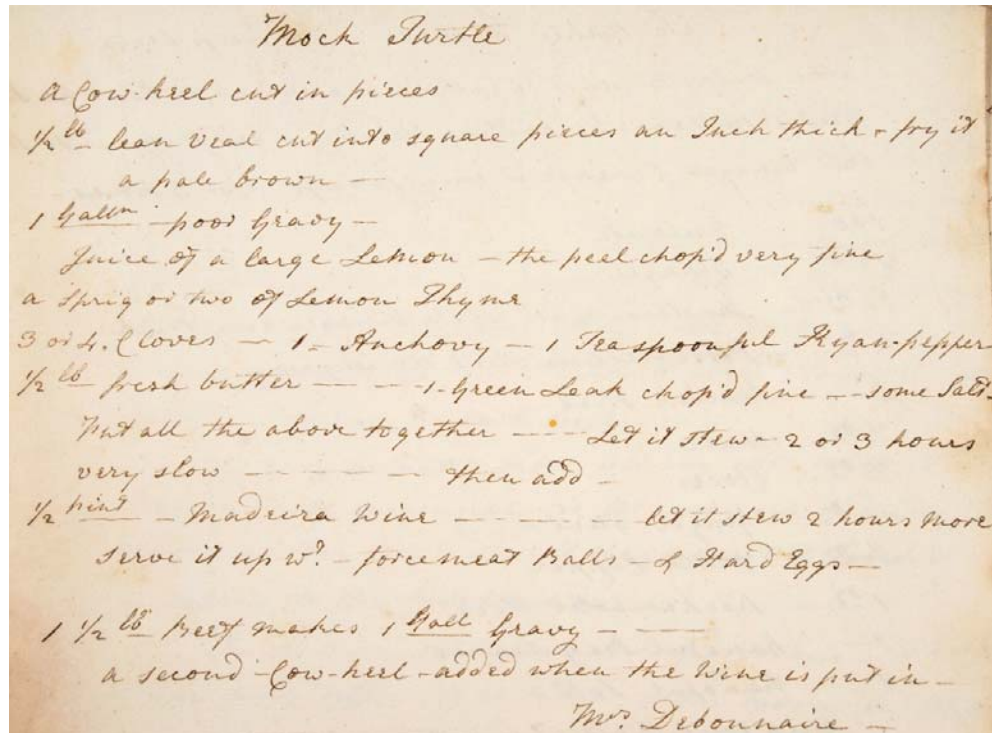 Mock Turtle
a Cow-heel cut in pieces
1/2 lb - lean Veal cut into square pieces an Inch thick - fry it
a pale brown —
1 Galln - poor Gravy —
Juice of a large Lemon - the peel chop'd very fine
a Sprig or two of Lemon Thyme
3 or 4. Cloves — 1 - Anchovy — 1 Teaspoonful Kyan-pepper
1/2 lb fresh butter — — - 1 - Green Leak chop'd fine - - some Salt -
Put all the above together — — Let it stew - 2 or 3 hours
very slow — — — — — then add -
1/2 pint - Madeira Wine — - - - - let it stew 2 hours more
serve it up wt. - forcemeat Balls - & Hard Eggs —
1 1/2 lb Beef makes 1 Gall Gravy - —
a second - Cow-heel - added when the Wine is put in -
Mrs. Debonnaire -